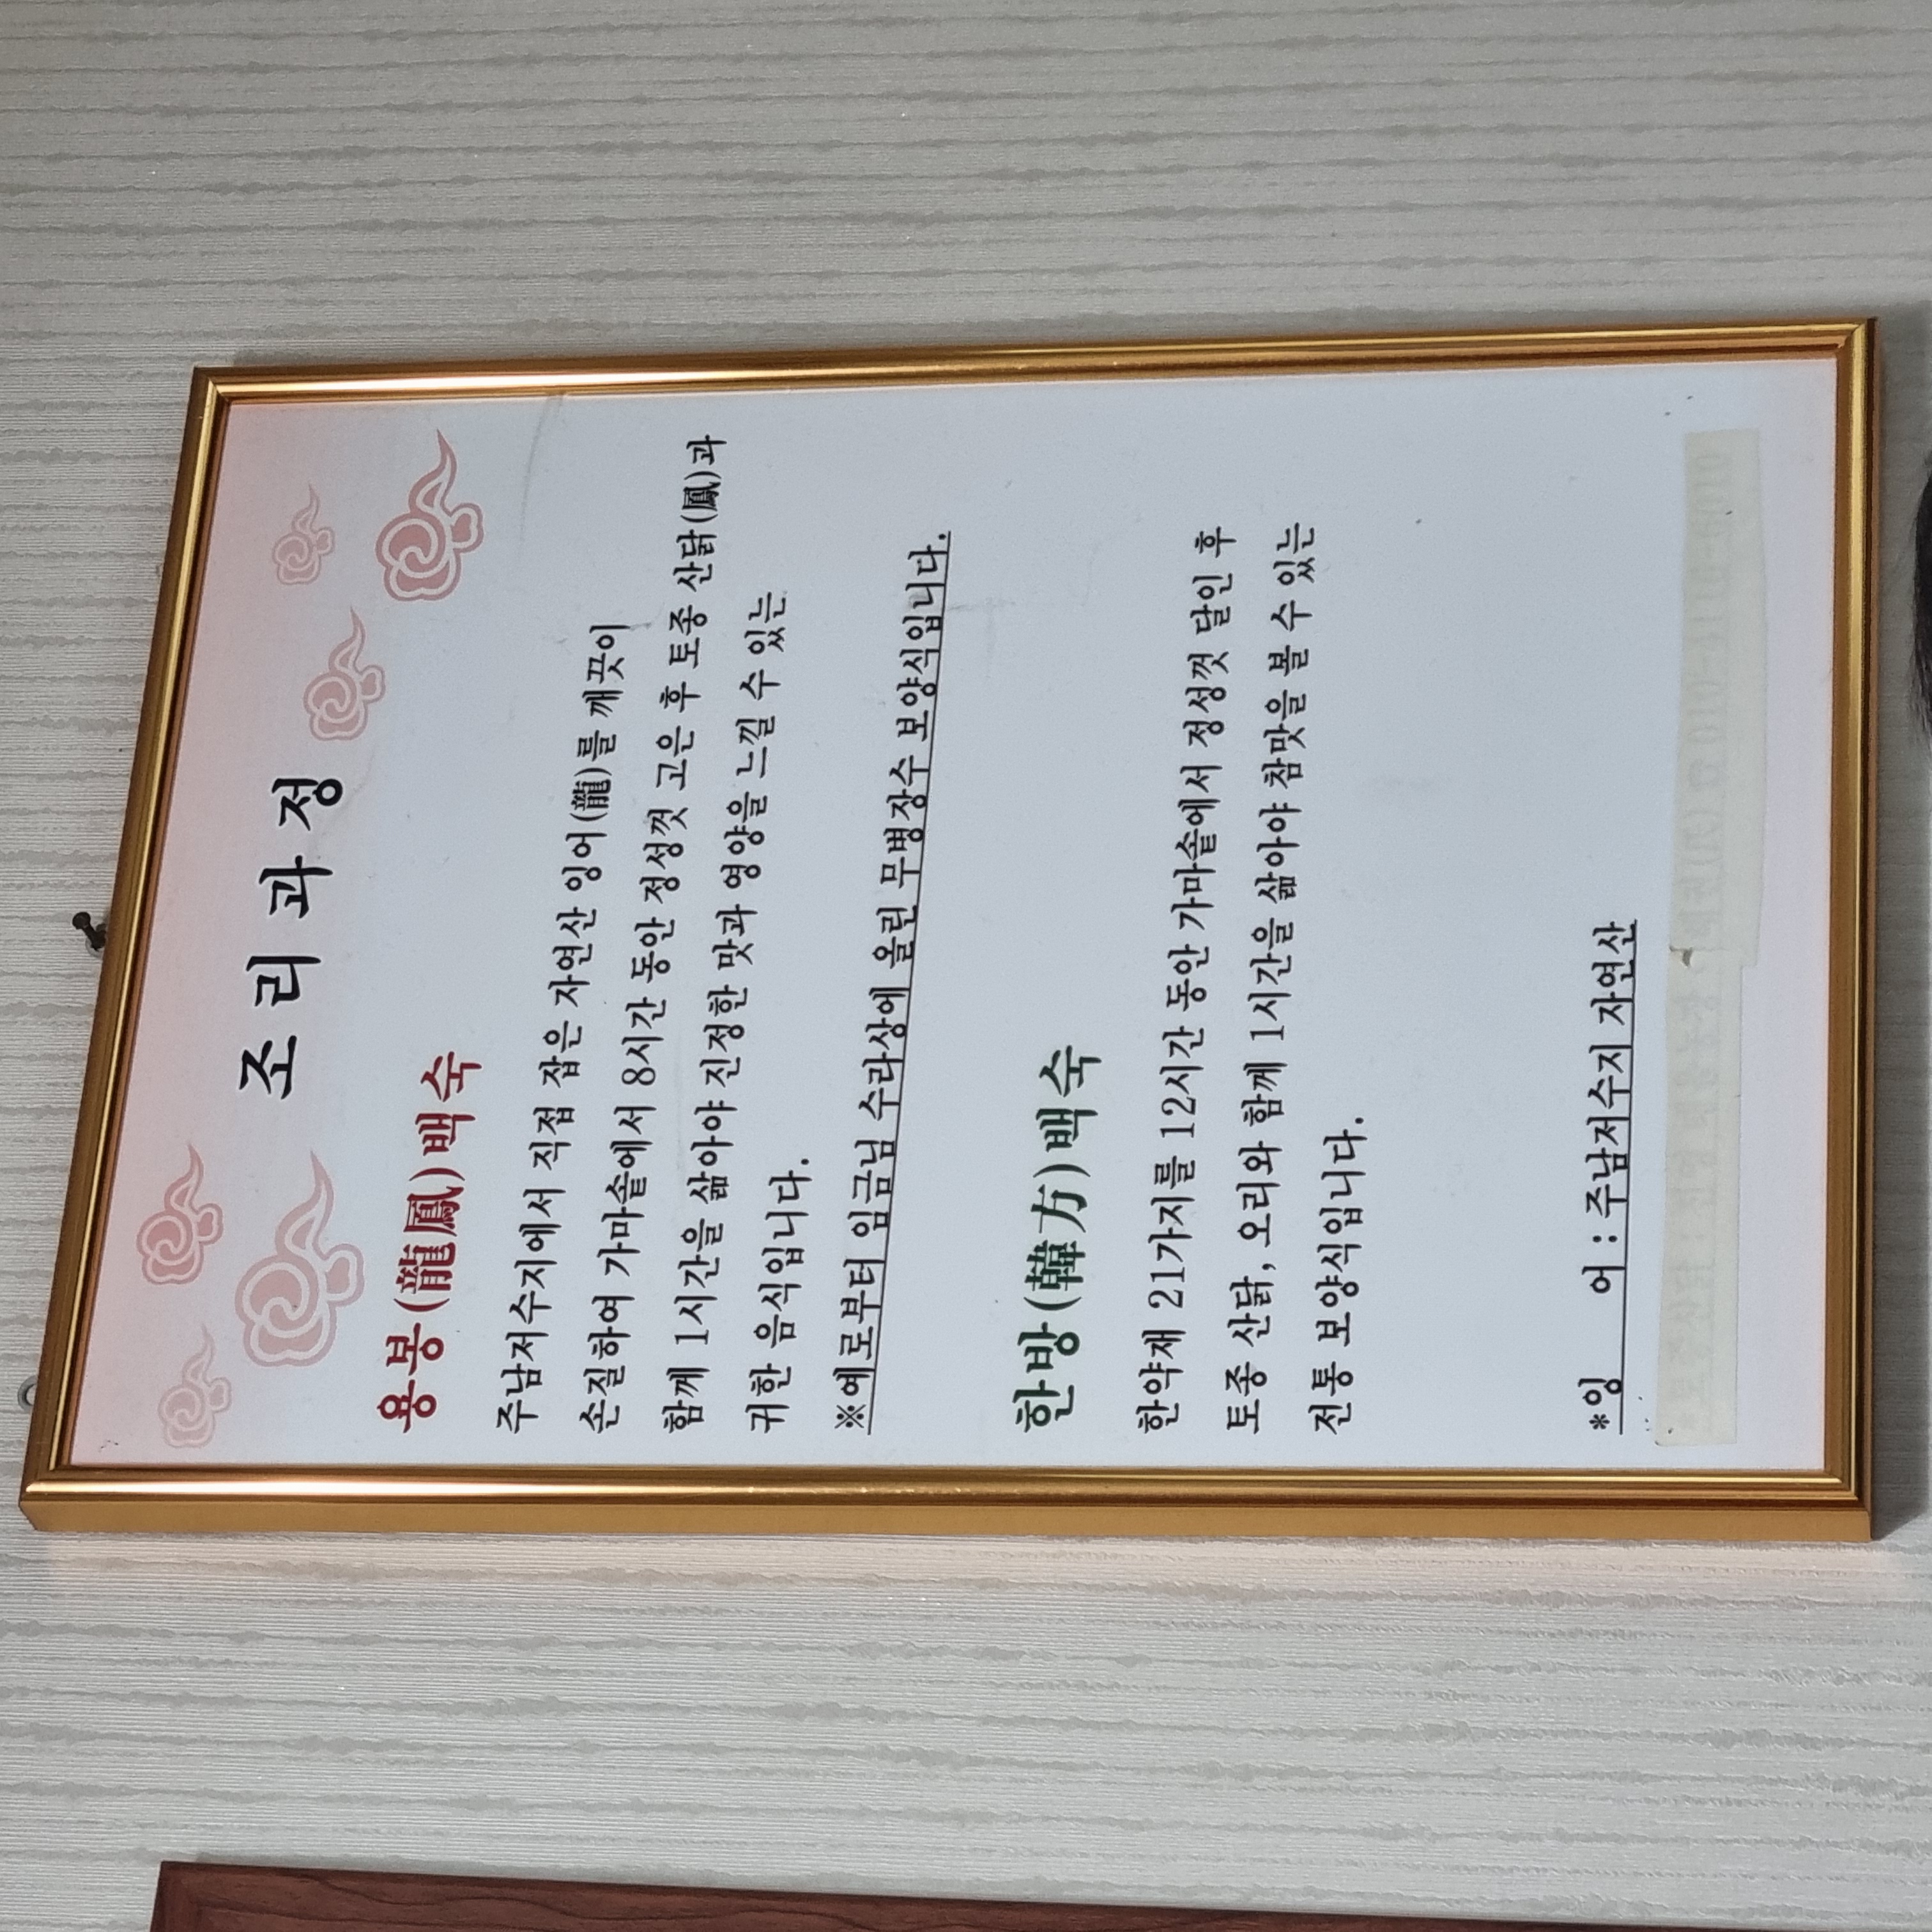 조리과정
용봉(龍鳳)백숙
주남저수지에서 직접 잡은 자연산 잉어(龍)를 깨끗이
손질하여 가마솥에서 8시간 동안 정성껏 고은 후 토종 산닭(鳳)과
함께 1시간을 삶아야 진정한 맛과 영양을 느낄 수 있는
귀한 음식입니다.
※예로부터 임금님 수라상에 올린 무병장수 보양식입니다.
한방(韓方)백숙
한약재 21가지를 12시간 동안 가마솥에서 정성껏 달인 후
토종 산닭, 오리와 함께 1시간을 삶아야 참맛을 볼 수 있는
전통 보양식입니다.
*잉 어 : 주남저수지 자연산